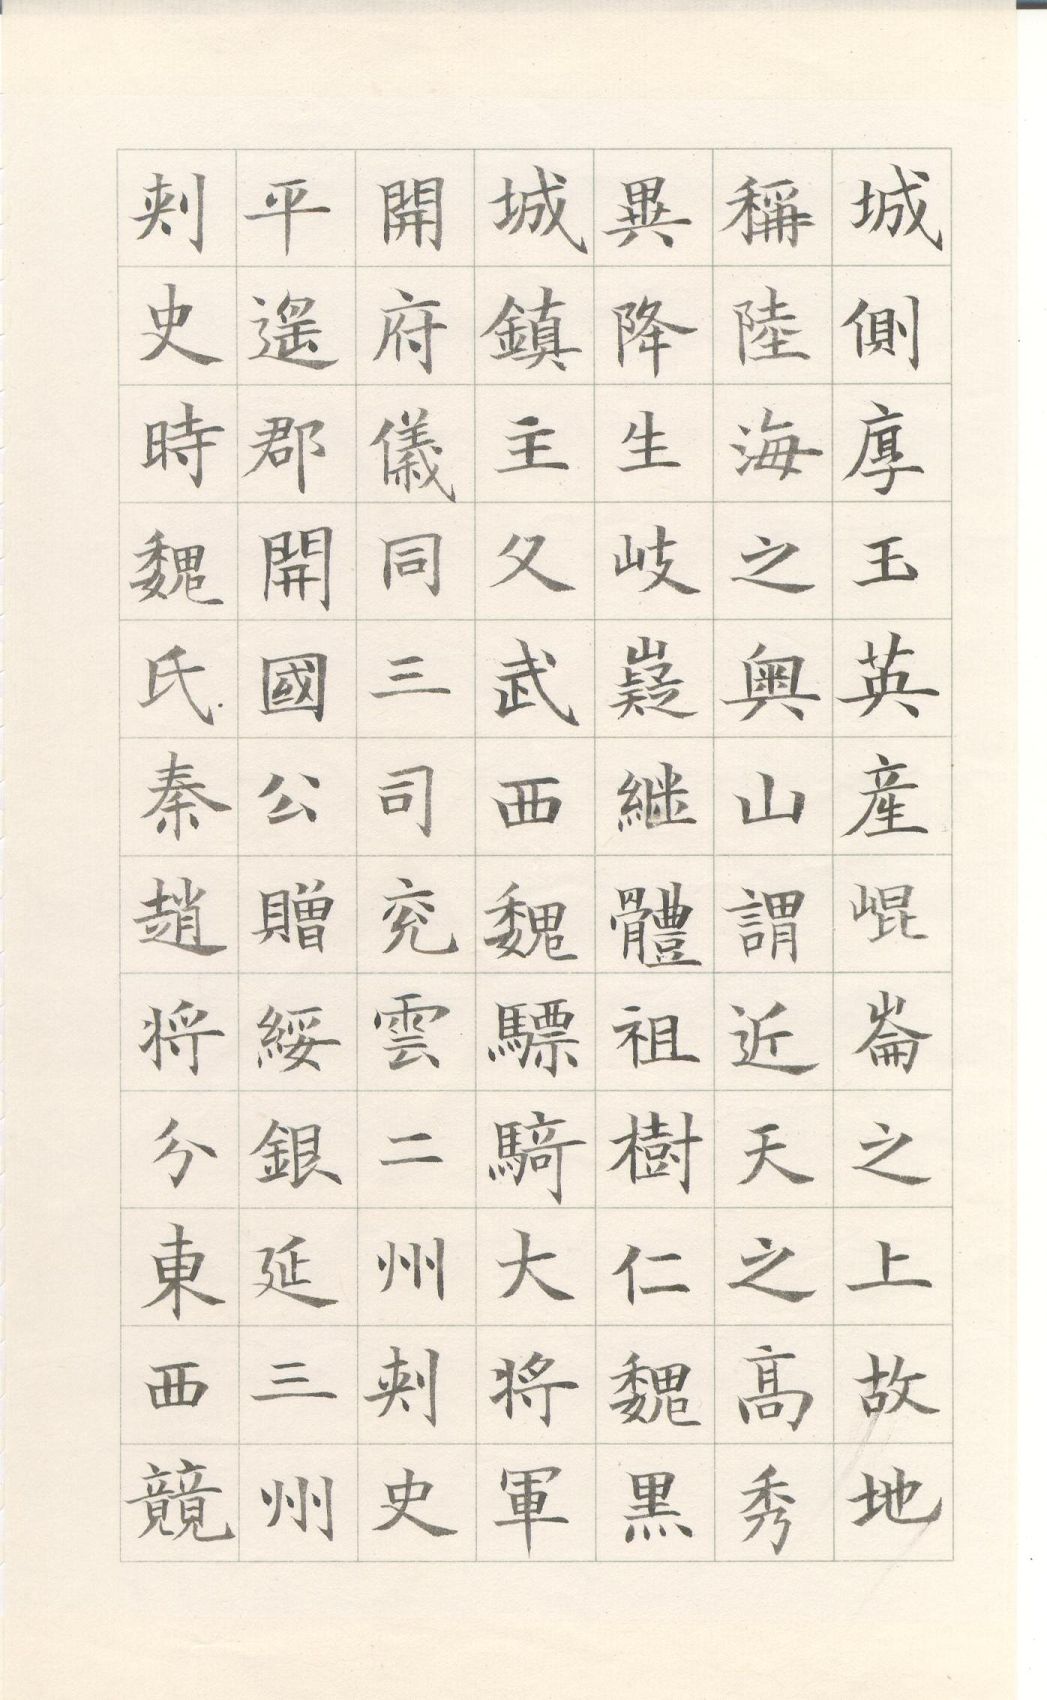 城側厚玉英產崐崙之上故地
稱陸海之奧山謂近天之高秀
異降生岐嶷継體祖樹仁魏黑
城鎮主久武西魏驃騎大将軍
開府儀同三司兖雲二州刺史
平遥郡開國公贈綏銀延三州
刺史時魏氏秦趙将分東西競